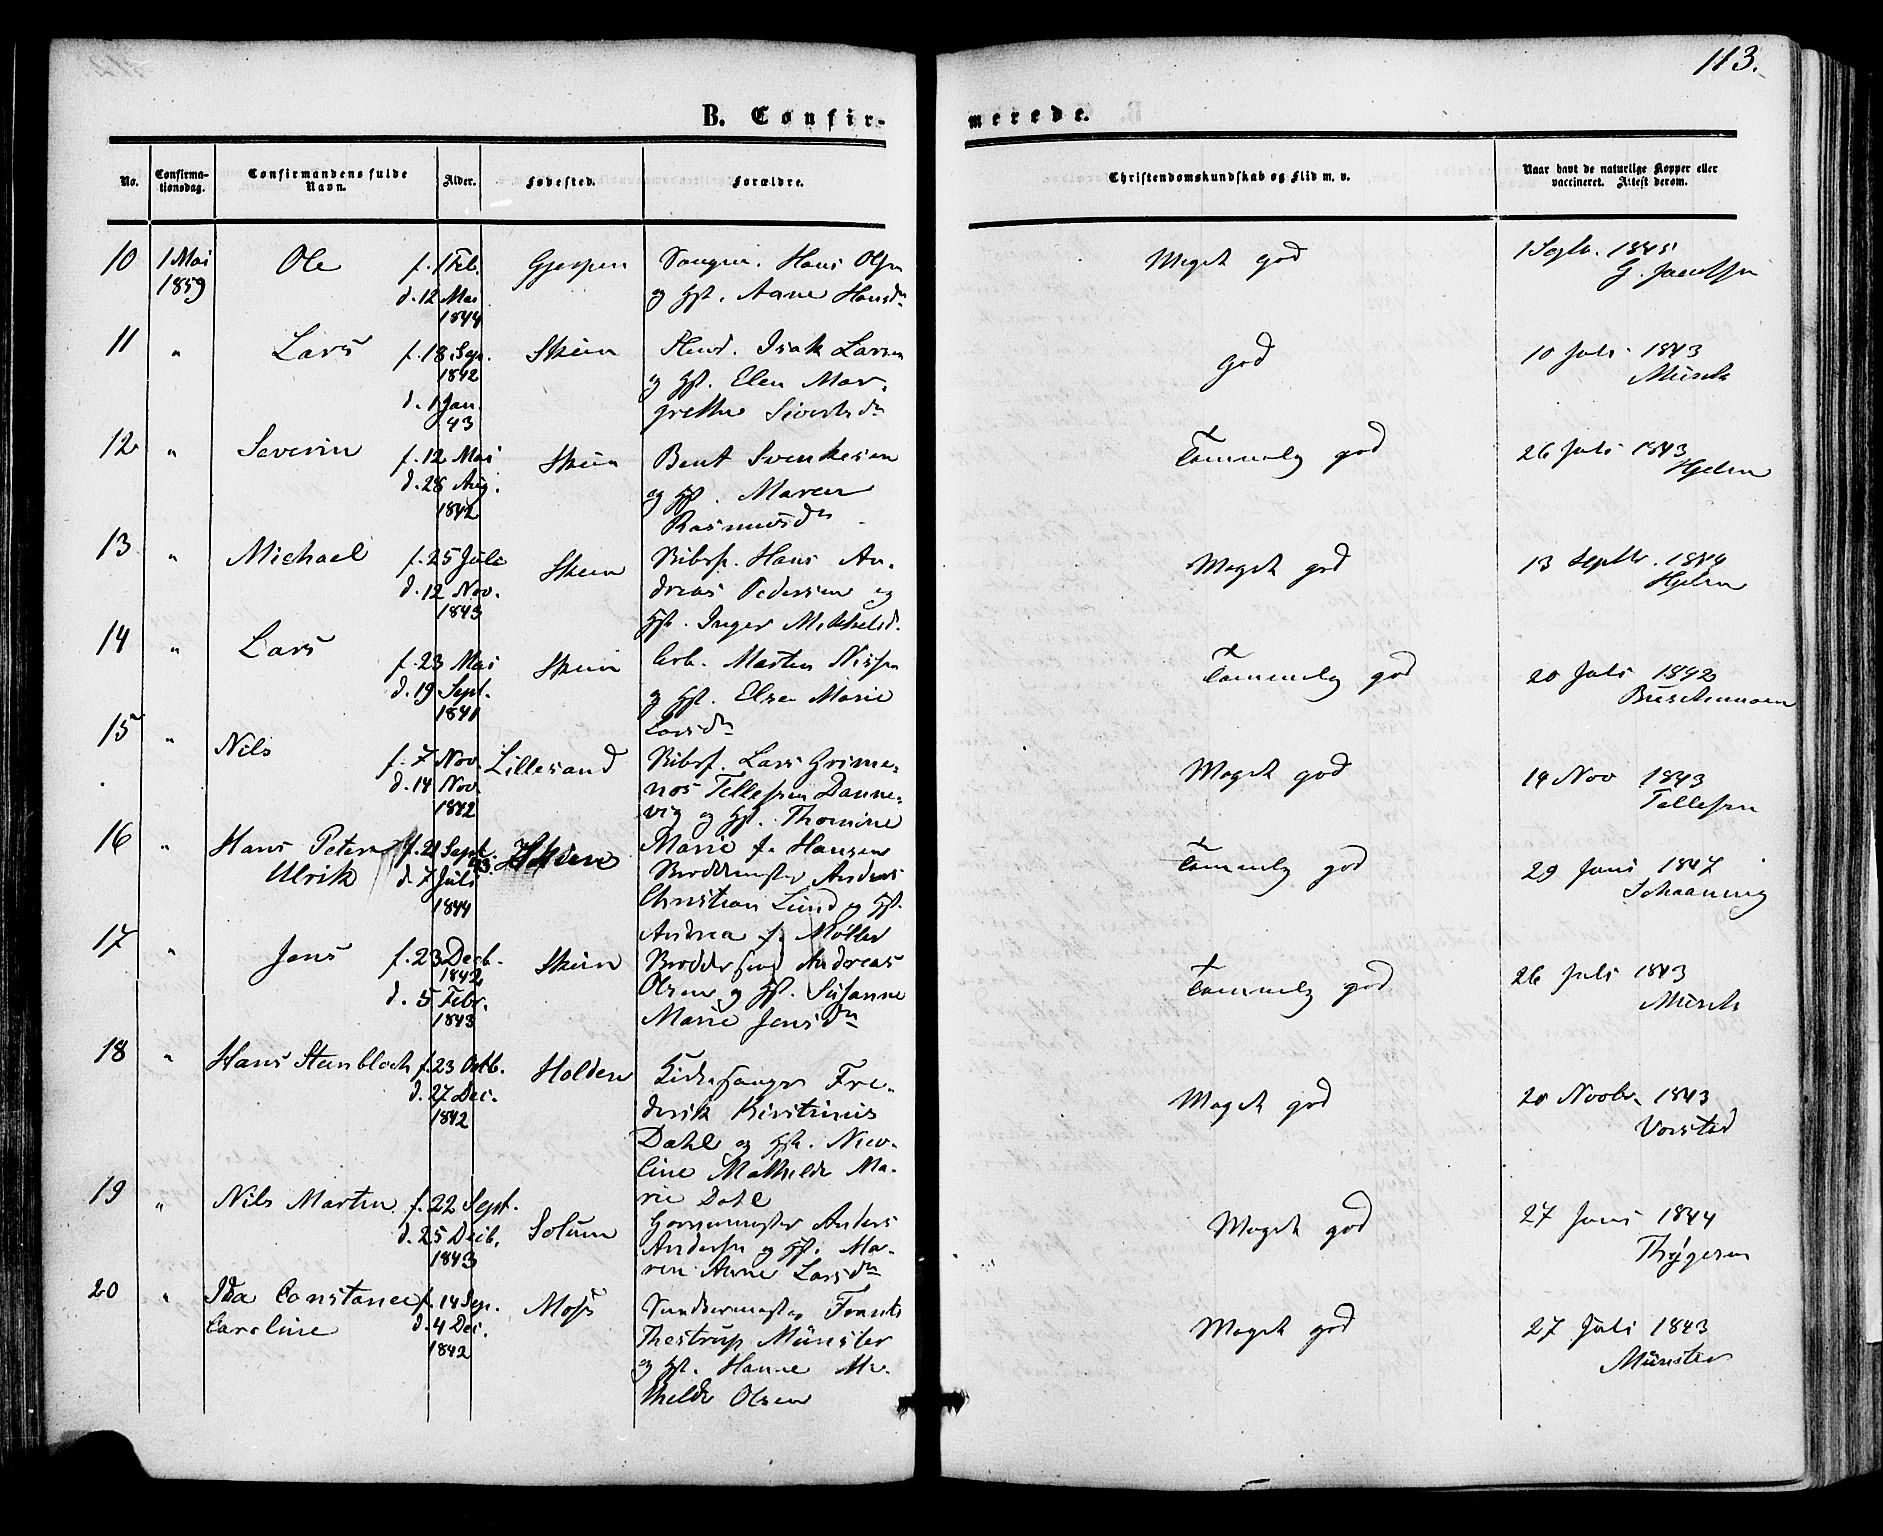 113.
B. Confir-
merede.
No.
Confirma-
tionsdag.
Confirmandens fulde
Navn.
Alder.
Fødested.
Forældre.
Christendomskundskab og Flid m. v.
Naar havt de naturlige Kopper eller
vaccineret. Attest derom.
10 1 Mai Ole f. 1 Feb. Gjerpen Hans Olsen Meget god 1 Septr. 1845
1859 d. 12 Mai og Hst. Anne Hansdn
1844
11 " Lars f. 18 Sep. Skien Isak Larsen god 10 Juli 1843
1842 og Hst. Elen Mar- Munch
d. 1 Jan. grethe Sivertsdn
43
12 " Severin f. 12 Mai Skien Bent Svenkesen Temmelig god 26 Juli 1843
d. 28 Aug. og Hst. Maren Hjelm
1842 Rasmusdn
13 " Michael f. 25 Juli Skien Skibsf. Hans An- Meget god 13 Septbr. 1844
d. 12 Nov. dreas Pedersen og Hjelm
1843 Hst. Inger Mikkelsd.
14 " Lars f. 23 Mai Skien Arb. Morten Nissen Temmelig god 20 Juli 1842
d. 19 Sept. og Hst. Elsen Marie
1841 Larsdn
15 " Nils f. 7 Nov. Lillesand Skibsf. Lars Grime- Meget god 14 Nov 1843
d. 14 Nov. nos Tellefsen Danne- Tellefsen
1842 vig og Hst. Thomine
Marie f. Hansen
16 " Hans Peter f. 21 Sept. 43 Holden Anders Temmelig god 29 Juni 1847
Ulrik d. 7 Juli Christian Lund og Hst. Schaaning
1844 Andrea f. Møller
17 " Jens f. 23 Decb. Skien Andreas Temmelig god 26 Juli 1843
1842 Olsen og Hst. Susanne Munch
d. 5 Febr. Marie Jensdn
1843
18 " Hans Steenbloch f. 23 Octb. Holden Kirkesanger Fre- Meget god 20 Novbr. 1843
d. 27 Dec. derik Kirstinus Vorsted
1842 Dahl og Hst. Nico-
line Mathilde Ma-
rie Dahl
19 " Nils Martin f. 22 Sept. Solum Anders Meget god 27 Juni 1844
d. 25 Decb. Andersen og Hst. Ma- Thygesen
1843 ren Anne Larsdn
20 " Ida Constance f. 14 Sep. Moss Frants Meget god 27 Juli 1843
Caroline d. 4 Dec. Thestrup Münster Münster
1842 og Hst. Hanne Ma-
thilde Olsen